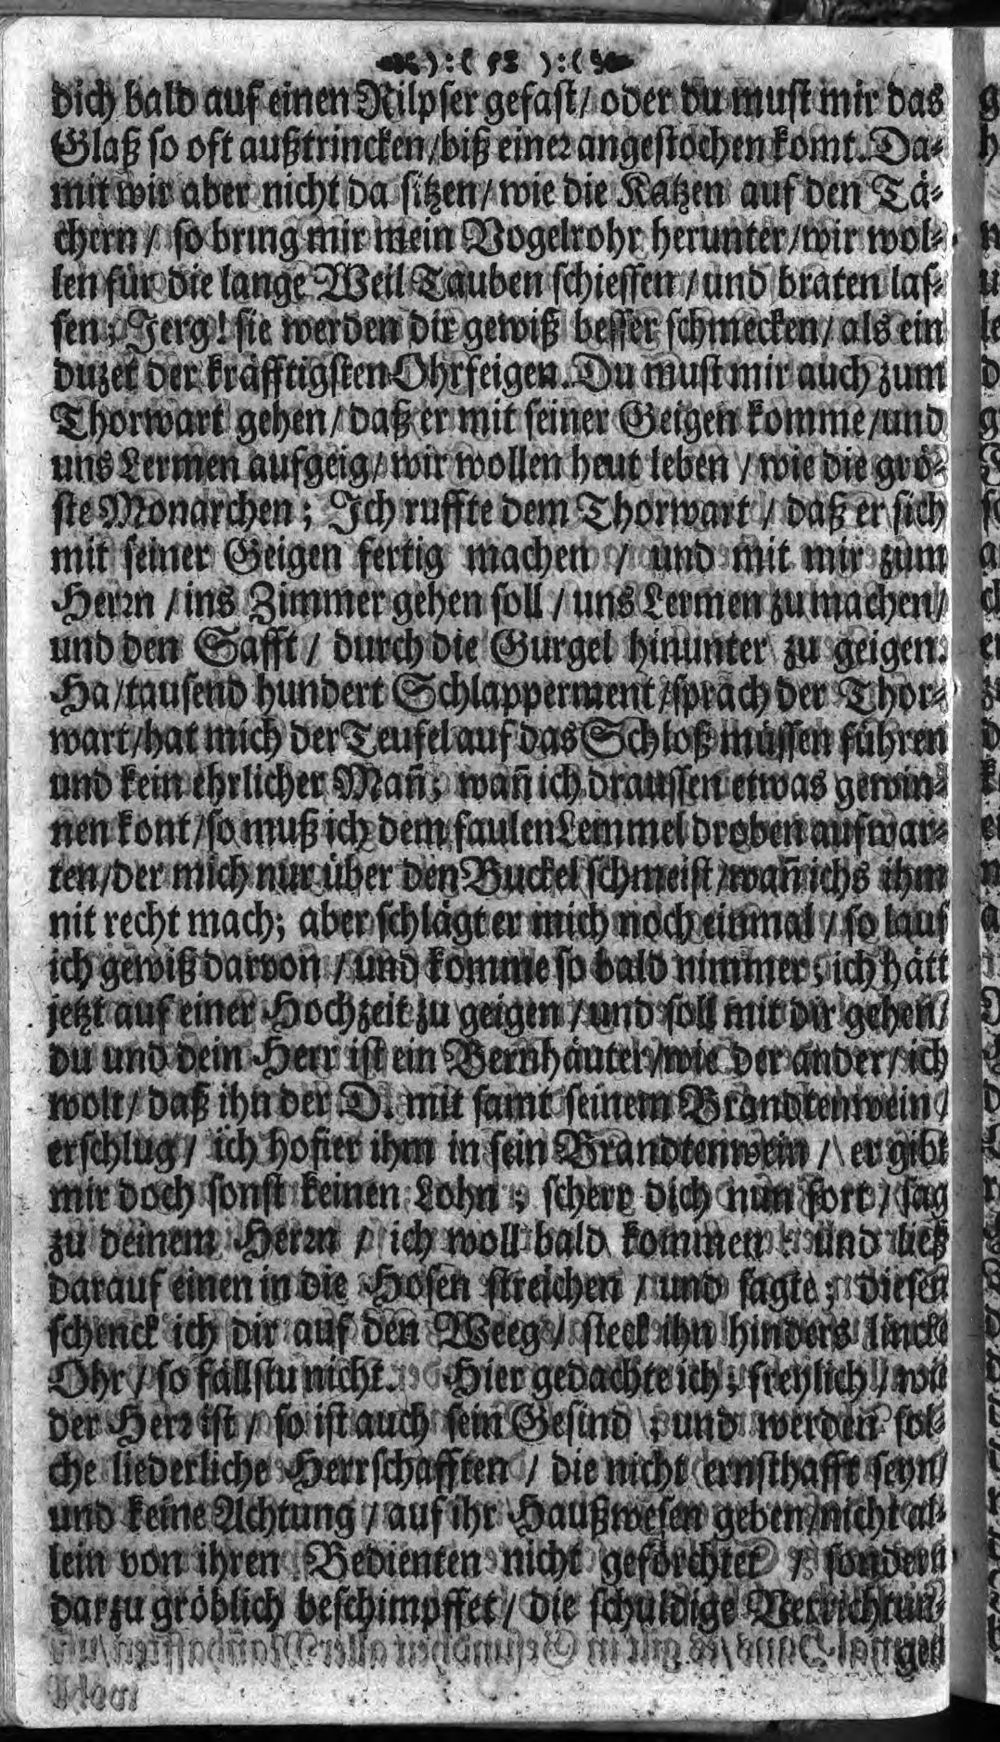 ):( 52 ):(
dich bald auf einen Rilpser gefast/ oder du must mir das
Glaß so oft außtrincken/biß einer angestochen komt. Da-
mit wir aber nicht da sitzen/ wie die Katzen auf den Tä-
chern / so bring mir mein Vogelrohr herunter/wir wol-
len für die lange Weil Tauben schiessen / und braten las-
sen; Jerg! sie werden dir gewiß besser schmecken/ als ein
duzet der kräfftigsten Ohrfeigen. Du must mir auch zum
Thorwart gehen/ daß er mit seiner Geigen komme/und
uns Lermen aufgeig/ wir wollen heut leben / wie die grö-
ste Monarchen; Ich ruffte dem Thorwart / daß er sich
mit seiner Geigen fertig machen / und mit mir zum
Herrn / ins Zimmer gehen soll / uns Lermen zu machen/
und den Safft / durch die Gurgel hinunter zu geigen.
Ha/tausend hundert Schlapperment/sprach der Thor-
wart/hat mich der Teufel auf das Schloß müssen führen
und kein ehrlicher Mañ; wañ ich draussen etwas gewin-
nen kont/so muß ich dem faulen Lemmel droben aufwar-
ten/der mich nur über den Buckel schmeist/wañ ichs ihm
nit recht mach; aber schlägt er mich noch einmal / so lauf
ich gewiß darvon / und komme so bald nimmer; ich hätt
jetzt auf einer Hochzeit zu geigen / und soll mit dir gehen/
du und dein Herr ist ein Bernhäuter/wie der ander/ ich
wolt/ daß ihn der D. mit samt seinem Brandtenwein/
erschlug/ ich hofier ihm in sein Brandtenwein / er gibt
mir doch sonst keinen Lohn; scherr dich nun fort / sag
zu deinem Herrn / ich woll bald kommen: und ließ
darauf einen in die Hosen streichen / und sagte; diesen
schenck ich dir auf den Weeg/ steck ihn hinders lincke
Ohr / so fällstu nicht. Hier gedachte ich; freylich / wie
der Herr ist / so ist auch sein Gesind; und werden sol-
che liederliche Herrschafften / die nicht ernsthafft seyn/
und keine Achtung / auf ihr Haußwesen geben/nicht al-
lein von ihren Bedienten nicht geförchtet / sondern
darzu gröblich beschimpffet/ die schuldige Verrichtun-
gen